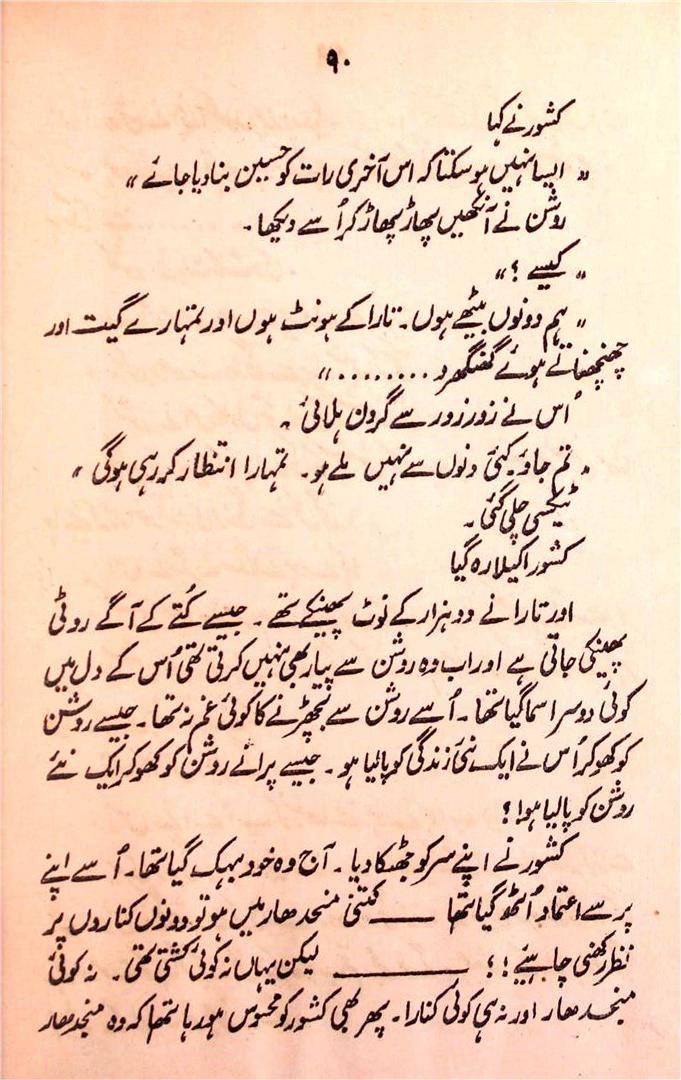 ۹۰
کشور نے کہا
"ایسا نہیں ہو سکتا کہ اس آخری رات کو حسین بنا دیا جائے"
روشن نے آنکھیں پھاڑ پھاڑ کر اُسے دیکھا۔
"کیسے ؟"
"ہم دونوں بیٹھے ہوں۔ تارا کے ہونٹ ہوں اور تمہارے گیت اور
چھنچھناتے ہوئے گھنگھرو ........"
اُس نے زور زور سے گردن ہلائی۔
"تم جاؤ۔ کئی دنوں سے نہیں ملے ہو۔ تمہارا انتظار کر رہی ہوگی"
ٹیکسی چلی گئی۔
کشور اکیلا رہ گیا
اور تارا نے دو ہزار کے نوٹ پھینکے تھے۔ جیسے کُتے کے آگے روٹی
پھینکی جاتی ہے اور اب وہ روشن سے پیار بھی نہیں کرتی تھی اُس کے دل میں
کوئی دوسرا سما گیا تھا۔ اُسے روشن سے بچھڑنے کا کوئی غم نہ تھا۔ جیسے روشن
کو کھو کر اُس نے ایک نئی زندگی کو پا لیا ہو۔ جیسے پرانے روشن کو کھو کر ایک نئے
روشن کو پا لیا ہو!؟
کشور نے اپنے سر کو جھٹکا دیا۔ آج وہ خود بہک گیا تھا۔ اُسے اپنے
پر سے اعتماد اُٹھ گیا تھا ــــــ کشتی منجدھار میں ہو تو دونوں کناروں پر
نظر رکھنی چاہیئے!؟ ــــــــــ لیکن یہاں نہ کوئی کشتی تھی۔ نہ کوئی
منجدھار اور نہ ہی کوئی کنارا۔ پھر بھی کشور کو محسوس ہو رہا تھا کہ وہ منجدھار